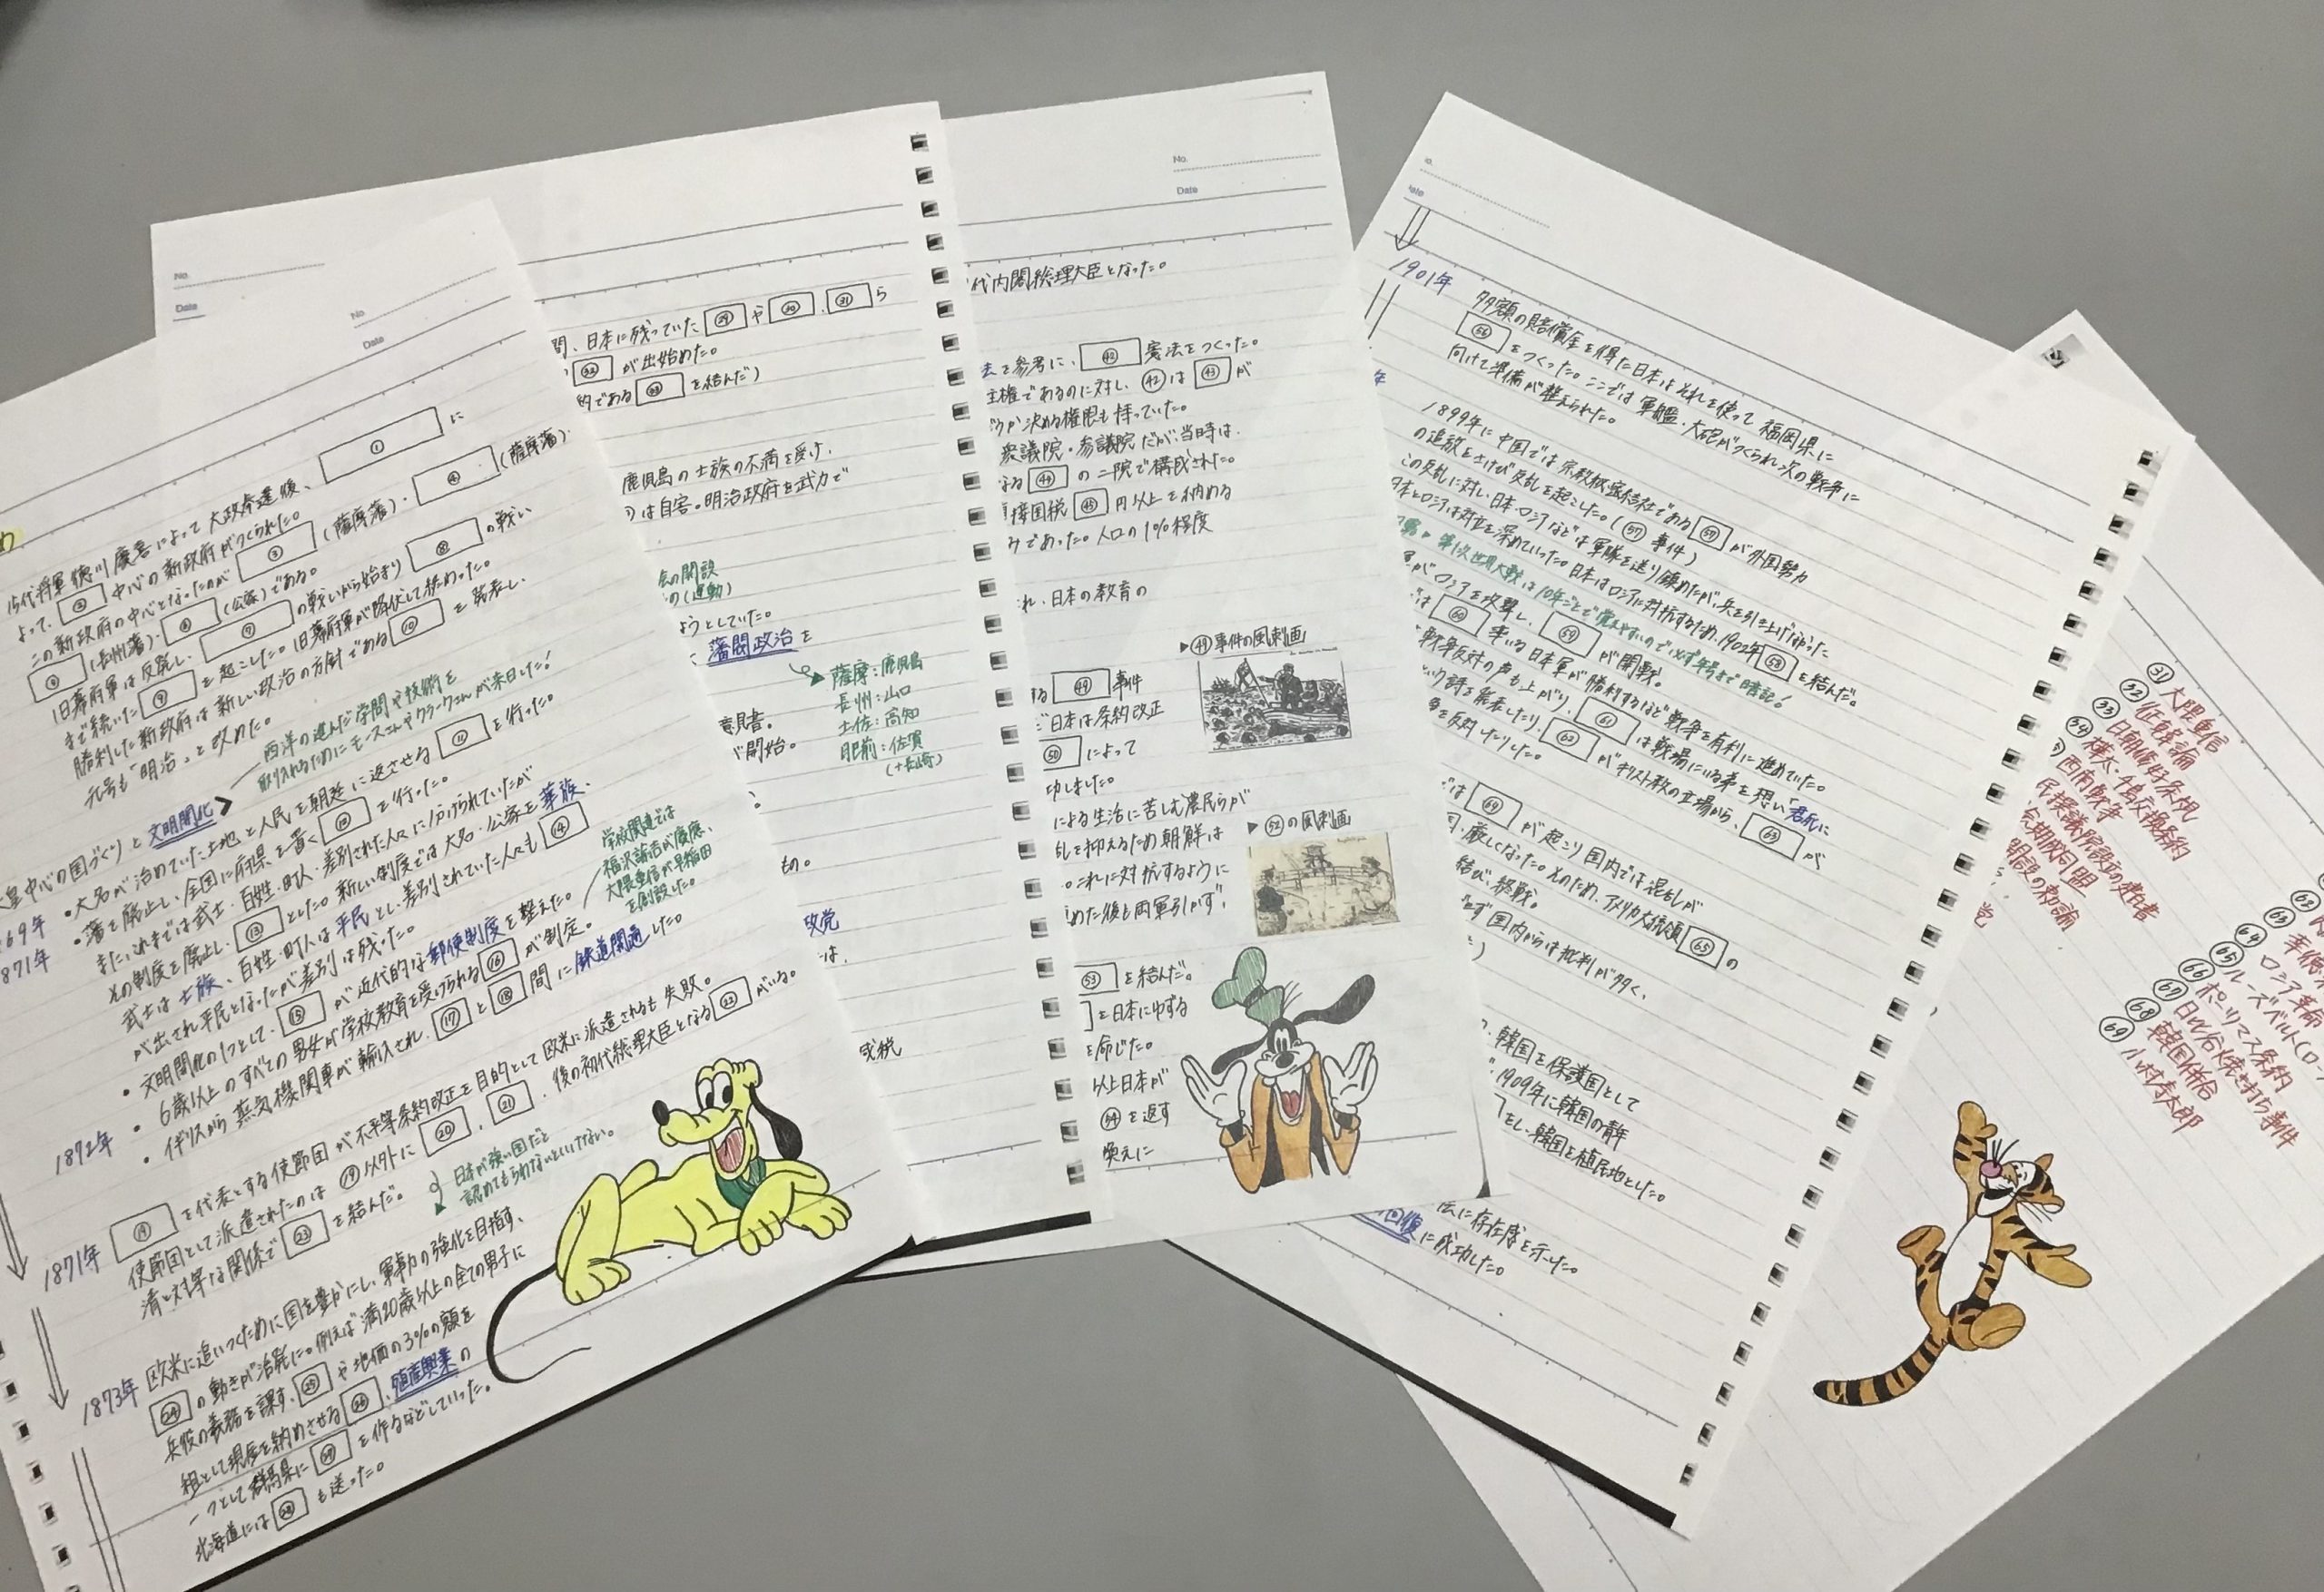 No.
Date
No
Date
15代将軍徳川慶喜によって大政奉還後、①に
よって、②中心の新政府がつくられた。
この新政府の中心となったのが③(薩摩藩)・④(薩摩藩)・
(長州藩)・(公家)である。
旧幕府軍は反発し、⑦の戦いから始まり⑧の戦い
まで続いた⑨を起こした。旧幕府軍が降伏して終わった。
勝利した新政府は新しい政治の方針である⑩を発表し、
元号も"明治"と改めた。
皇中心の国づくりと文明開化
西洋の進んだ学問や技術を
取り入れるためにモースさんやクラークさんが来日した!
69年
・大名が治めていた土地と人民を朝廷に返させる⑪を行った。
871年
・藩を廃止し、全国に府県を置く⑫を行った。
また、これまでは武士・百姓・町人・差別された人々に分けられていたが
その制度を廃止し、⑬とした。新しい制度では大名・公家を華族、
武士は士族、百姓・町人は平民とし、差別されていた人々も⑭
が出され平民となったが差別は残った。
・文明開化の1つとして、⑮が近代的な郵便制度を整えた。
1872年
・6歳以上のすべての男女が学校教育を受けられる⑯が制定。
学校関連では
福沢諭吉が慶應、
大隈重信が早稲田
を創設した
・イギリスから蒸気機関車が輸入され、⑰と⑱間に鉄道開通した。
1871年
⑲を代表とする使節団が不平等条約改正を目的として欧米に派遣されるも失敗。
使節団として派遣されたのは⑲以外に⑳、㉑、後の初代総理大臣となる㉒がいる。
清と対等な関係で㉓を結んだ。
日本が強い国だと
認めてもらわないといけない。
1873年
欧米に追いつくために国を豊かにし、軍事力の強化を目指す、
㉔の動きが活発に。例えば満20歳以上の全ての男子に
兵役の義務を課す、㉕や地価の3%の額を
租として現金を納めさせる㉖、殖産興業の
一つとして群馬県に㉗を作るなどしていった。
北海道には㉘も送った。
間、日本に残っていた㉙や㉚、㉛ら
㉜が出始めた。
的である㉝を結んだ)
鹿児島の士族の不満を受け、
は自害。明治政府を武力で
会の開設
の(運動)
ようとしていた。
藩閥政治を
薩摩:鹿児島
長州:山口
土佐:高知
肥前:佐賀
(+長崎)
意見書。
が開始。
もの。
政党
は、
式税
No.
Date
代内閣総理大臣となった。
法を参考に、㊷憲法をつくった。
主権であるのに対し、㊷は㊸が
うか決める権限も持っていた。
衆議院・参議院だが、当時は、
なる㊹の二院で構成された。
直接国税㊺円以上を納める
みであった。人口の1%程度
れ、日本の教育の
する㊾事件
▶㊾事件の風刺画
日本は条約改正
㊿によって
功しました。
による生活に苦しむ農民らが
乱を抑えるため朝鮮は
▶52の風刺画
。これに対抗するように
めた後も両軍引かず、
53を結んだ。
]を日本にゆずる
を命じた。
以上日本が
54を返す
換えに
Date
1901年
多額の賠償金を得た日本はそれを使って福岡県に
56をつくった。ここでは軍艦・大砲がつくられ次の戦争に
向けて準備が整えられた。
1899年に中国では宗教秘密結社である57が外国勢力
の追放をさけび反乱を起こした。(57事件)
この反乱に対し、日本・ロシアなどは軍隊を送り鎮めたが、兵を引き上げなかった
日本とロシアは対立を深めていった。日本はロシアに対抗するため、1902年58を結んだ。
第1次世界大戦は10年ごとで覚えやすいので必ず年号まで暗記!
がロシアを攻撃し、59が開戦。
は60率いる日本軍が勝利するなど戦争を有利に進めていた。
戦争反対の声も上がり、61は戦場にいる弟を想い「君死に
という詩を発表したり、62がキリスト教の立場から、63が
を反対したりした。
は64が起こり国内では混乱が
厳しくなった。そのため、アメリカ大統領65の
結び、終戦。
ず国内からは批判が多く、
韓国を保護国として
1909年に韓国の青年
]をし、韓国を植民地とした。
法に存在感を示した。
回復に成功した。
㉛ 大隈重信
㉜ 征韓論
㉝ 日朝修好条規
㉞ 樺太・千島交換条約
西南戦争
民撰議院設立の建白書
会期成同盟
開設の勅諭
党
64 ロシア革命
65 ルーズベルト(ロ
66 ポーツマス条約
67 日比谷焼き打ち事件
68 韓国併合
69 小村寿太郎